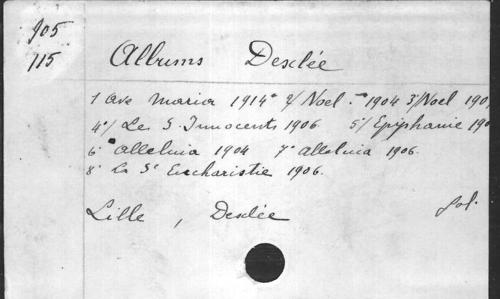 905
115
Albums Desclée
1 Ave Maria 1914° 2/ Noel. 1904 3°/Noel 190
4°/ Les S. Innocents 1906. 5°/ Epiphanie 190
6° Alleluia 1904 7° Alleluia 1906.
8° La Ste Eucharistie 1906.
Lille, Desclée fol.